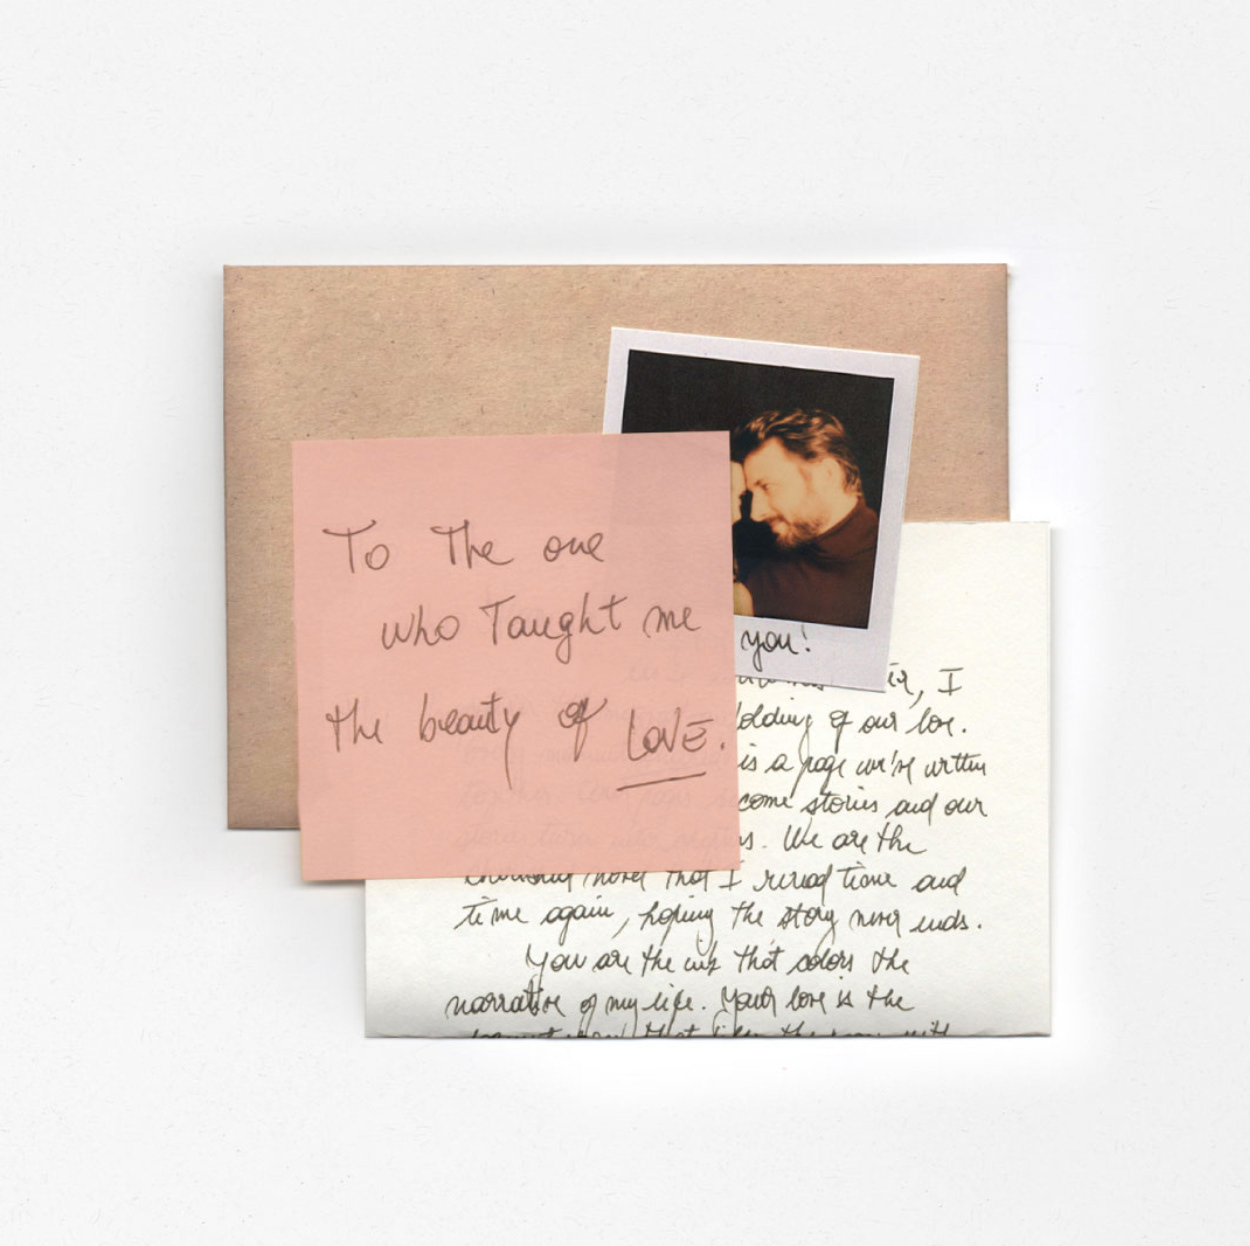 To The one
who Taught me
the beauty of LOVE.
you!
, I
of our love.
is a page we've written
come stories and our
We are the
novel that I reread time and
time again, hoping the story never ends.
You are the ink that colors the
narrative of my life. Your love is the
that